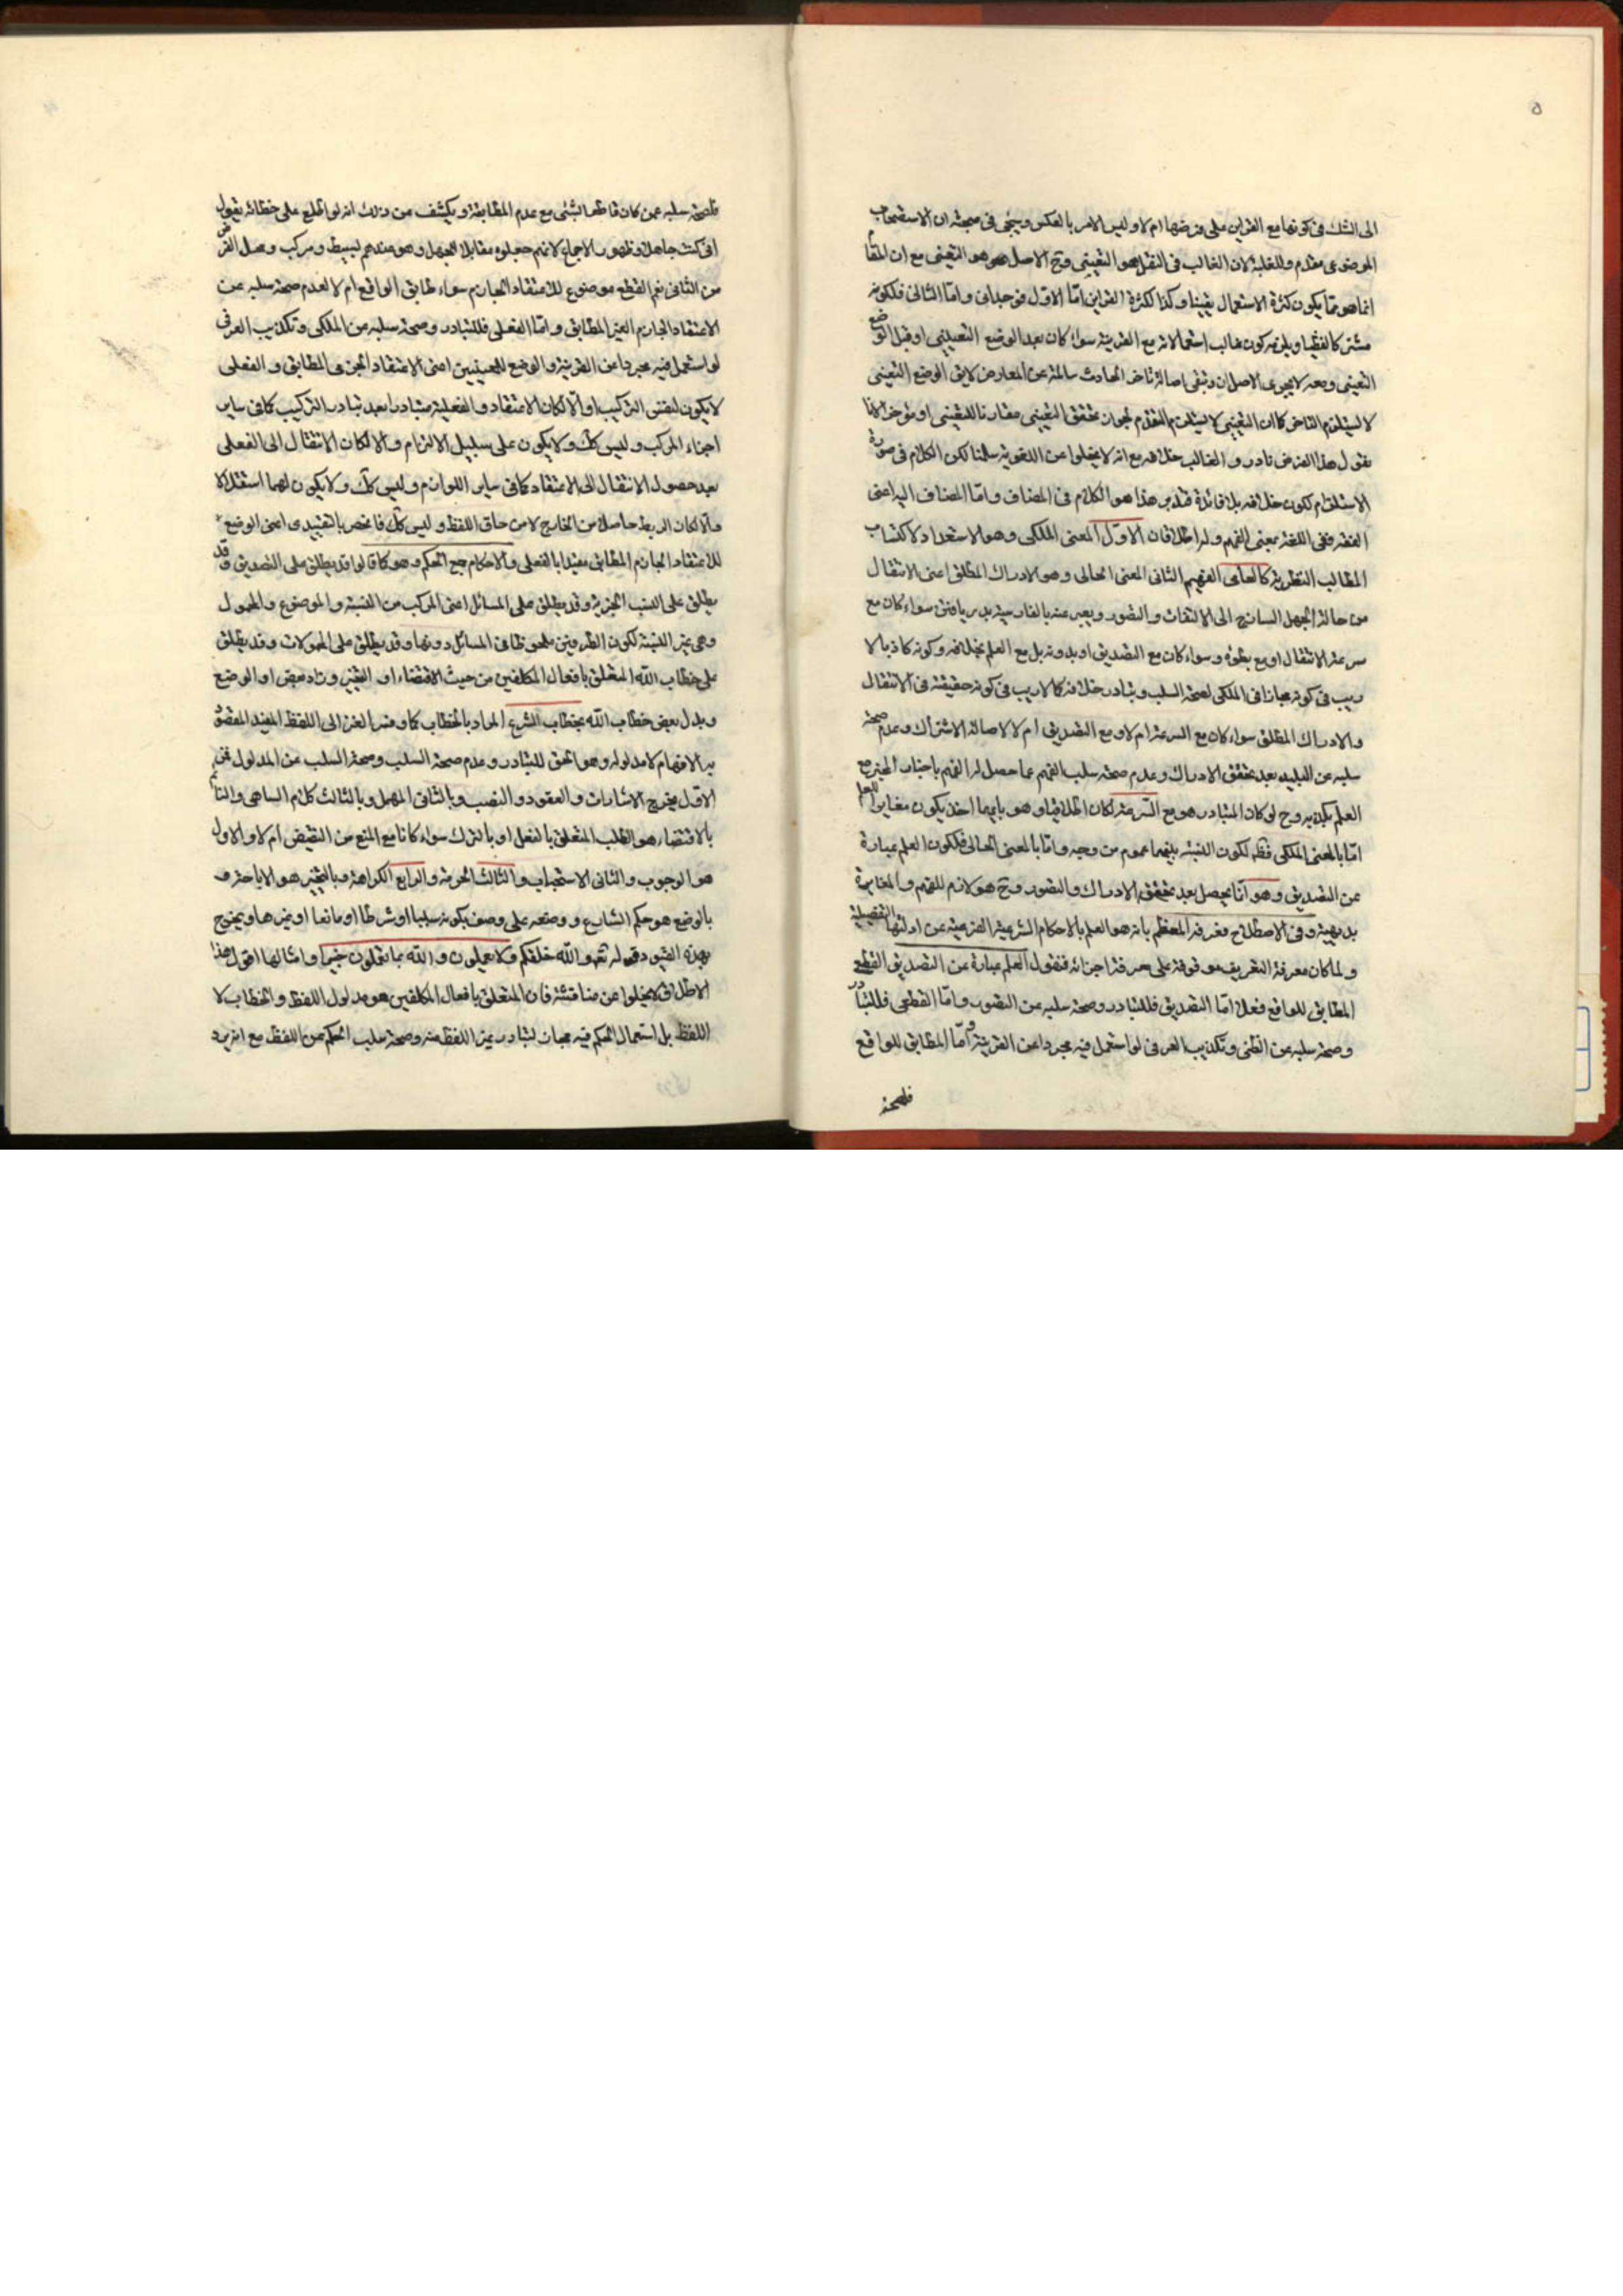 ٥
الى الشك فى كونها مع القراين على فرضها ام لا وليس الامر بالعكس ويجئ فى مبحثه ان الاستصحاب
الموضوعى مقدم وللغلبة لان الغالب فى النقل هو التعينى وح الاصل هو التعينى مع ان المقام
انما هو مما يكون كثرة الاستعمال يقينا وكذا لكثرة القراين اما الاول فوجدانى واما الثانى فلكونه
مشتركا لفظيا ويلزمه كون غالب استعمالاته مع القرينة سواء كان بعد الوضع التعيينى او قبل الوضع
التعينى ومعه لا يجرى الاصلان وتبقى اصالة تاخر الحادث سالمة عن المعارض لا يق الوضع التعينى
لا يستلزم التاخر كما ان التعيينى لا يستلزم التقدم لجواز تحقق التعيينى مقارنا للتعينى او مؤخرا لانا
نقول هذا الفرض نادر والغالب خلافه مع انه لا يخلوا عن اللغوية سلمنا لكن الكلام فى صورة
الاستلزام لكون خلافه بلا فائدة فتدبر هذا هو الكلام فى المضاف واما المضاف اليه اعنى
الفقه ففى اللغة بمعنى الفهم وله اطلاقان الاول المعنى الملكى وهو الاستعداد لاكتساب
المطالب النظرية كالعامى الفهيم الثانى المعنى الحالى وهو الادراك المطلق اعنى الانتقال
من حالة الجهل الساذج الى الالتفات والتصور ويعبر عنه بالفارسية بدريافتن سواء كان مع
سرعة الانتقال او مع بطوئه وسواء كان مع التصديق او بدونه بل مع العلم بخلافه وكونه كاذبا لا
ريب فى كونه مجازا فى الملكى لصحة السلب وتبادر خلافه كما لا ريب فى كونه حقيقة فى الانتقال
والادراك المطلق سواء كان مع السرعة ام لا ومع التصديق ام لا لاصالة الاشتراك وعدم صحة
سلبه عن البليد بعد تحقق الادراك وعدم صحة سلب الفهم عما حصل له الفهم باخبار المخبر مع
العلم بكذبه وح لو كان المتبادر هو مع السرعة لكان اطلاقيا وهو بايهما اخذ يكون مغايرا للعلم
اما بالمعنى الملكى فظ لكون النسبة بينهما عموم من وجه واما بالمعنى الحالى فلكون العلم عبارة
عن التصديق وهو انما يحصل بعد تحقق الادراك والتصور وح هو لازم للفهم والمغايرة
بديهية وفى الاصطلاح فعرفه المعظم بانه هو العلم بالاحكام الشرعية الفرعية عن ادلتها التفصيلية
ولما كان معرفة التعريف موقوفة على معرفة اجزائه فنقول العلم عبارة عن التصديق القطعى
المطابق للواقع فعلا اما التصديق فللتبادر وصحة سلبه عن التصور واما القطعى فللتبادر
وصحة سلبه عن الظنى وتكذيب العرف لو استعمل فيه مجردا عن القرينة واما المطابق للواقع
فلصحة
فلصحة سلبه عمن كان قاطعا لشئ مع عدم المطابقة ويكشف عن ذلك انه لو اطلع على خطائه يقول
انى كنت جاهلا وظهور الاجماع لانهم جعلوه مقابلا للجهل وهو عندهم لبسيط ومركب وجعل الفرض
من الثانى نعم القطع موضوع للاعتقاد الجازم سواء طابق الواقع ام لا لعدم صحة سلبه عن
الاعتقاد الجازم الغير المطابق واما الفعلى فللتبادر وصحة سلبه عن الملكى وتكذيب العرف
لو استعمل فيه مجردا عن القرينة والوضع للمعنيين اعنى الاعتقاد الجزمى المطابق والفعلى
لا يكون لنفس التركيب اولا والا لكان الاعتقاد والفعلية متبادرا بعد تبادر التركيب كما فى ساير
اجزاء المركب وليس كك ولا يكون على سبيل الالتزام والا لكان الانتقال الى الفعلى
بعد حصول الانتقال الى الاعتقاد كما فى ساير اللوازم وليس كك ولا يكون لهما استقلالا
والا لكان الربط حاصلا من الخارج لا من حاق اللفظ وليس كك فانحصر بالتقييدى اعنى الوضع
للاعتقاد الجازم المطابق مقيدا بالفعلى والاحكام جمع الحكم وهو كما قالوا قد يطلق على التصديق وقد
يطلق على النسب الخبرية وقد يطلق على المسائل اعنى المركب من النسبة والموضوع والمحمول
وهى غير النسبة لكون الطرفين ملحوظا فى المسائل دونها وقد يطلق على المحمولات وقد يطلق
على خطاب الله المتعلق بافعال المكلفين من حيث الاقتضاء او التخيير وزاد بعض او الوضع
وبدل بعض خطاب الله بخطاب الشرع المراد بالخطاب كما وفسره الغزالى اللفظ المفيد المقصود
به الافهام لا مدلوله وهو الحق للتبادر وعدم صحة السلب وصحة السلب عن المدلول فمن
الاول يخرج الاشارات والعقود والنصب وبالثانى المهمل وبالثالث كلام الساهى والنائم
بالاقتضاء هو الطلب المتعلق بالفعل او بالترك سواء كانا مع المنع من النقيض ام لا والاول
هو الوجوب والثانى الاستحباب والثالث الحرمة والرابع الكراهة وبالتخيير هو الاباحة و
بالوضع هو حكم الشارع ووصفه على وصف بكونه سببا او شرطا او مانعا او غيرها ويخرج
بهذه القيود قوله تعه والله خلقكم وما تعملون والله بما تعملون خبير وامثالها اقول هذا
الاطلاق لا يخلوا عن مناقشة فان المتعلق بافعال المكلفين هو مدلول اللفظ والخطاب لا
اللفظ بل استعمال الحكم فيه مجاز لتبادر غير اللفظ منه وصحة سلب الحكم عن اللفظ مع انه يرد